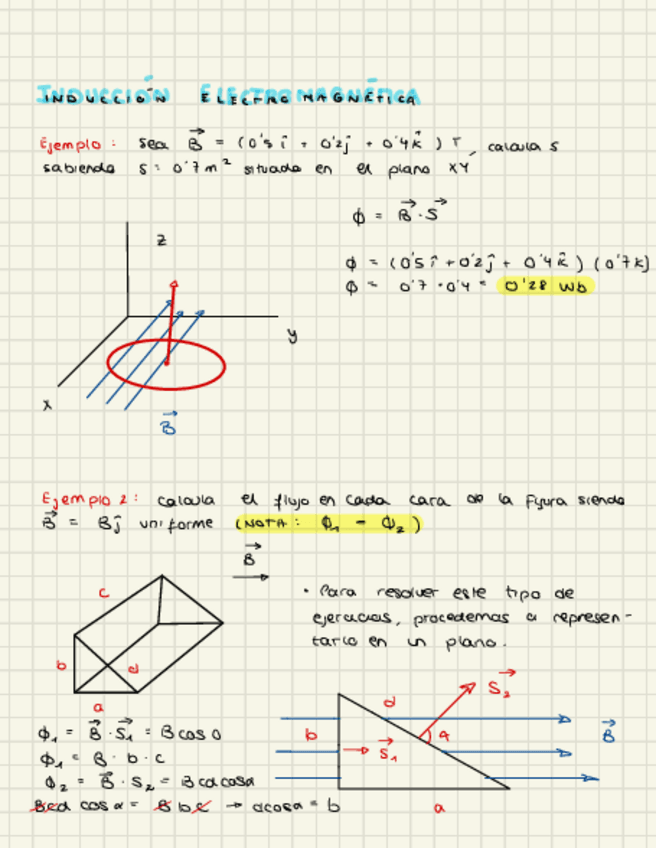 INDUCCIÓN ELECTROMAGNÉTICA
Ejemplo: sea B⃗ = (0'5 î + 0'2 ĵ + 0'4 k̂) T, calcula s
sabiendo s = 0'7 m² situada en el plano XY
ϕ = B⃗ · S⃗
ϕ = (0'5 î + 0'2 ĵ + 0'4 k̂) (0'7 k)
ϕ = 0'7 · 0'4 = 0'28 Wb
z
y
x
B⃗
Ejemplo 2: calcula el flujo en cada cara de la figura siendo
B⃗ = Bĵ uniforme (NOTA: ϕ₁ = ϕ₂)
B⃗
c
b
d
a
• Para resolver este tipo de
ejercicios, procedemos a represen-
tarlo en un plano.
d
S⃗₂
b
S⃗₁
B⃗
a
ϕ₁ = B⃗ · S⃗₁ = B cos 0
ϕ₁ = B · b · c
ϕ₂ = B⃗ · S₂ = B cd cosα
Bcd cos α = B b c → d cosα = b